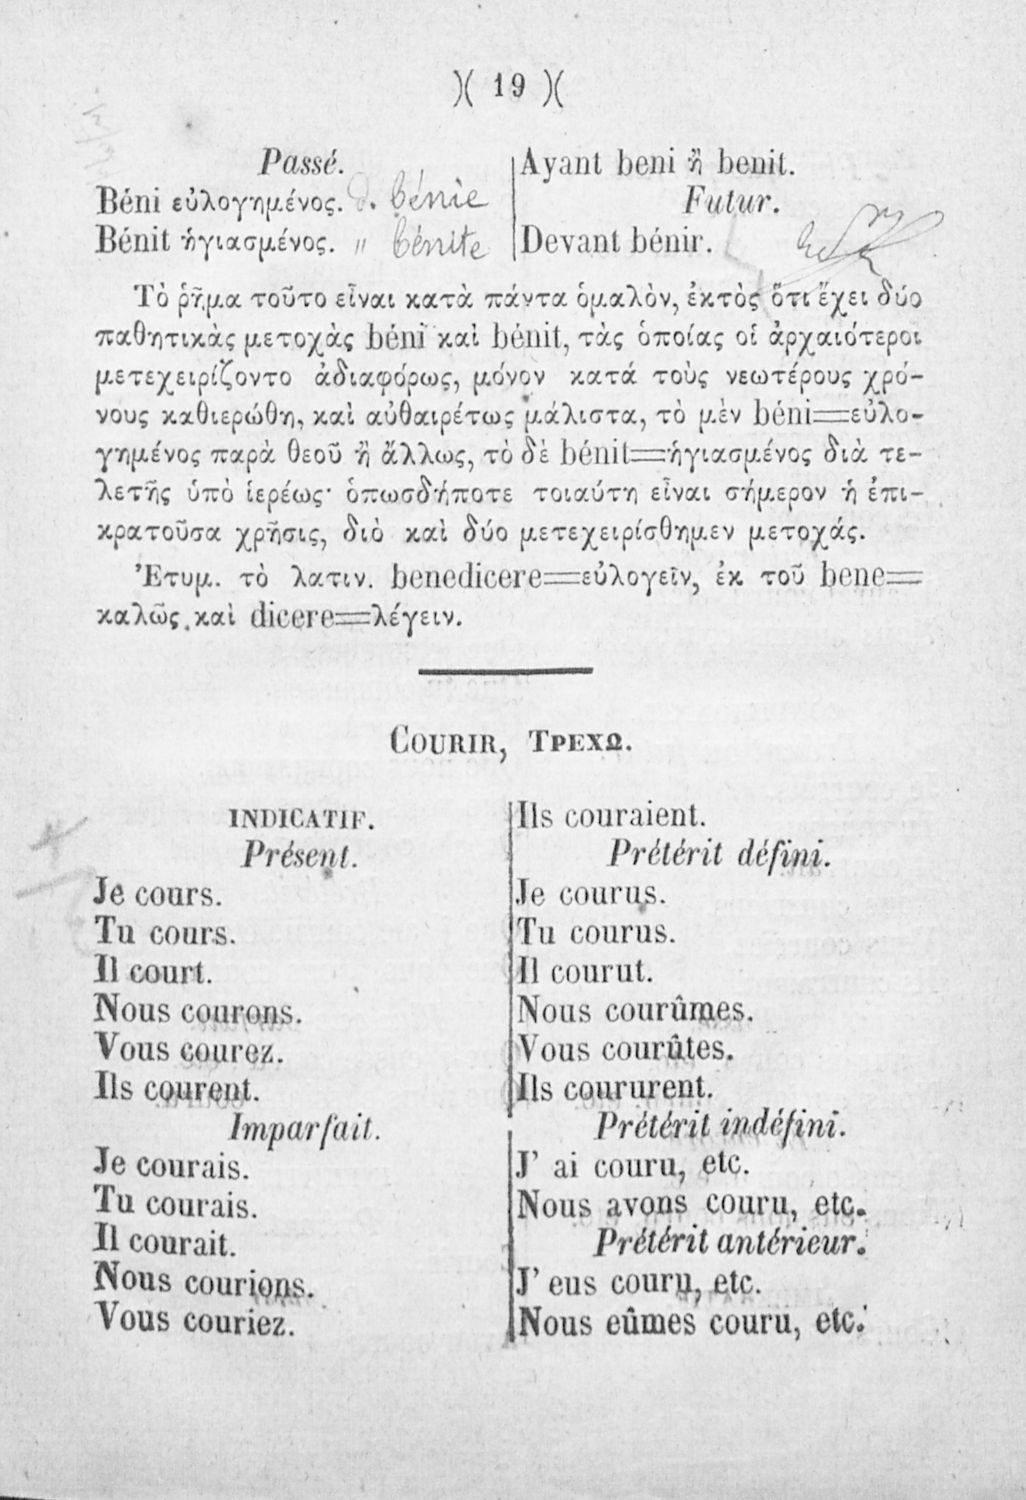 )( 19 )(
Passé.
Béni εὐλογημένος. θ. bénie
Bénit ἡγιασμένος. " bénite
Ayant beni ἢ benit.
Futur.
Devant bénir.
Τὸ ῥῆμα τοῦτο εἶναι κατὰ πάντα ὁμαλὸν, ἐκτὸς ὅτι ἔχει δύο
παθητικὰς μετοχὰς béni καὶ bénit, τὰς ὁποίας οἱ ἀρχαιότεροι
μετεχειρίζοντο ἀδιαφόρως, μόνον κατά τοὺς νεωτέρους χρό-
νους καθιερώθη, καὶ αὐθαιρέτως μάλιστα, τὸ μὲν béni=εὐλο-
γημένος παρὰ θεοῦ ἢ ἄλλως, τὸ δὲ bénit=ἡγιασμένος διὰ τε-
λετῆς ὑπὸ ἱερέως· ὁπωσδήποτε τοιαύτη εἶναι σήμερον ἡ ἐπι-
κρατοῦσα χρῆσις, διὸ καὶ δύο μετεχειρίσθημεν μετοχάς.
Ἐτυμ. τὸ λατιν. benedicere=εὐλογεῖν, ἐκ τοῦ bene=
καλῶς καὶ dicere=λέγειν.
COURIR, ΤΡΕΧΩ.
INDICATIF.
Présent.
Je cours.
Tu cours.
Il court.
Nous courons.
Vous courez.
Ils courent.
Imparfait.
Je courais.
Tu courais.
Il courait.
Nous courions.
Vous couriez.
Ils couraient.
Prétérit défini.
Je courus.
Tu courus.
Il courut.
Nous courûmes.
Vous courûtes.
Ils coururent.
Prétérit indéfini.
J' ai couru, etc.
Nous avons couru, etc.
Prétérit antérieur.
J' eus couru, etc.
Nous eûmes couru, etc.